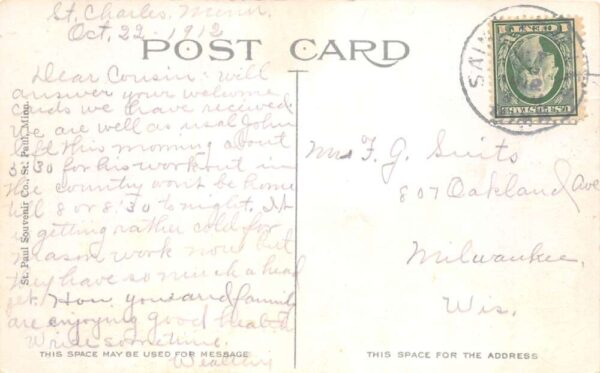 St. Charles, Minn.
Oct. 22 - 1912
POST CARD
Dear Cousin: will
answer your welcome
cards we have received.
We are well as usual John
left this morning about
6:30 for his work out in
the country wont be home
till 8 or 8:30 tonight. It
is getting rather cold for
mason work now but
they have so much ahead
yet. How you and family
are enjoying good health
Write sometime.
Wealthy
THIS SPACE MAY BE USED FOR MESSAGE
St. Paul Souvenir Co., St. Paul, Minn.
Mrs F. G. Suits
807 Oakland Ave
Milwaukee,
Wis.
THIS SPACE FOR THE ADDRESS
SAIN